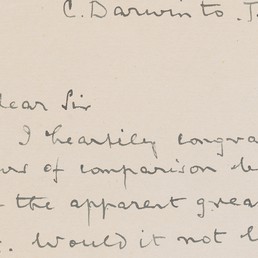 C. Darwin to J.
dear Sir
I heartily congra
of comparison be
the apparent grea
Would it not b